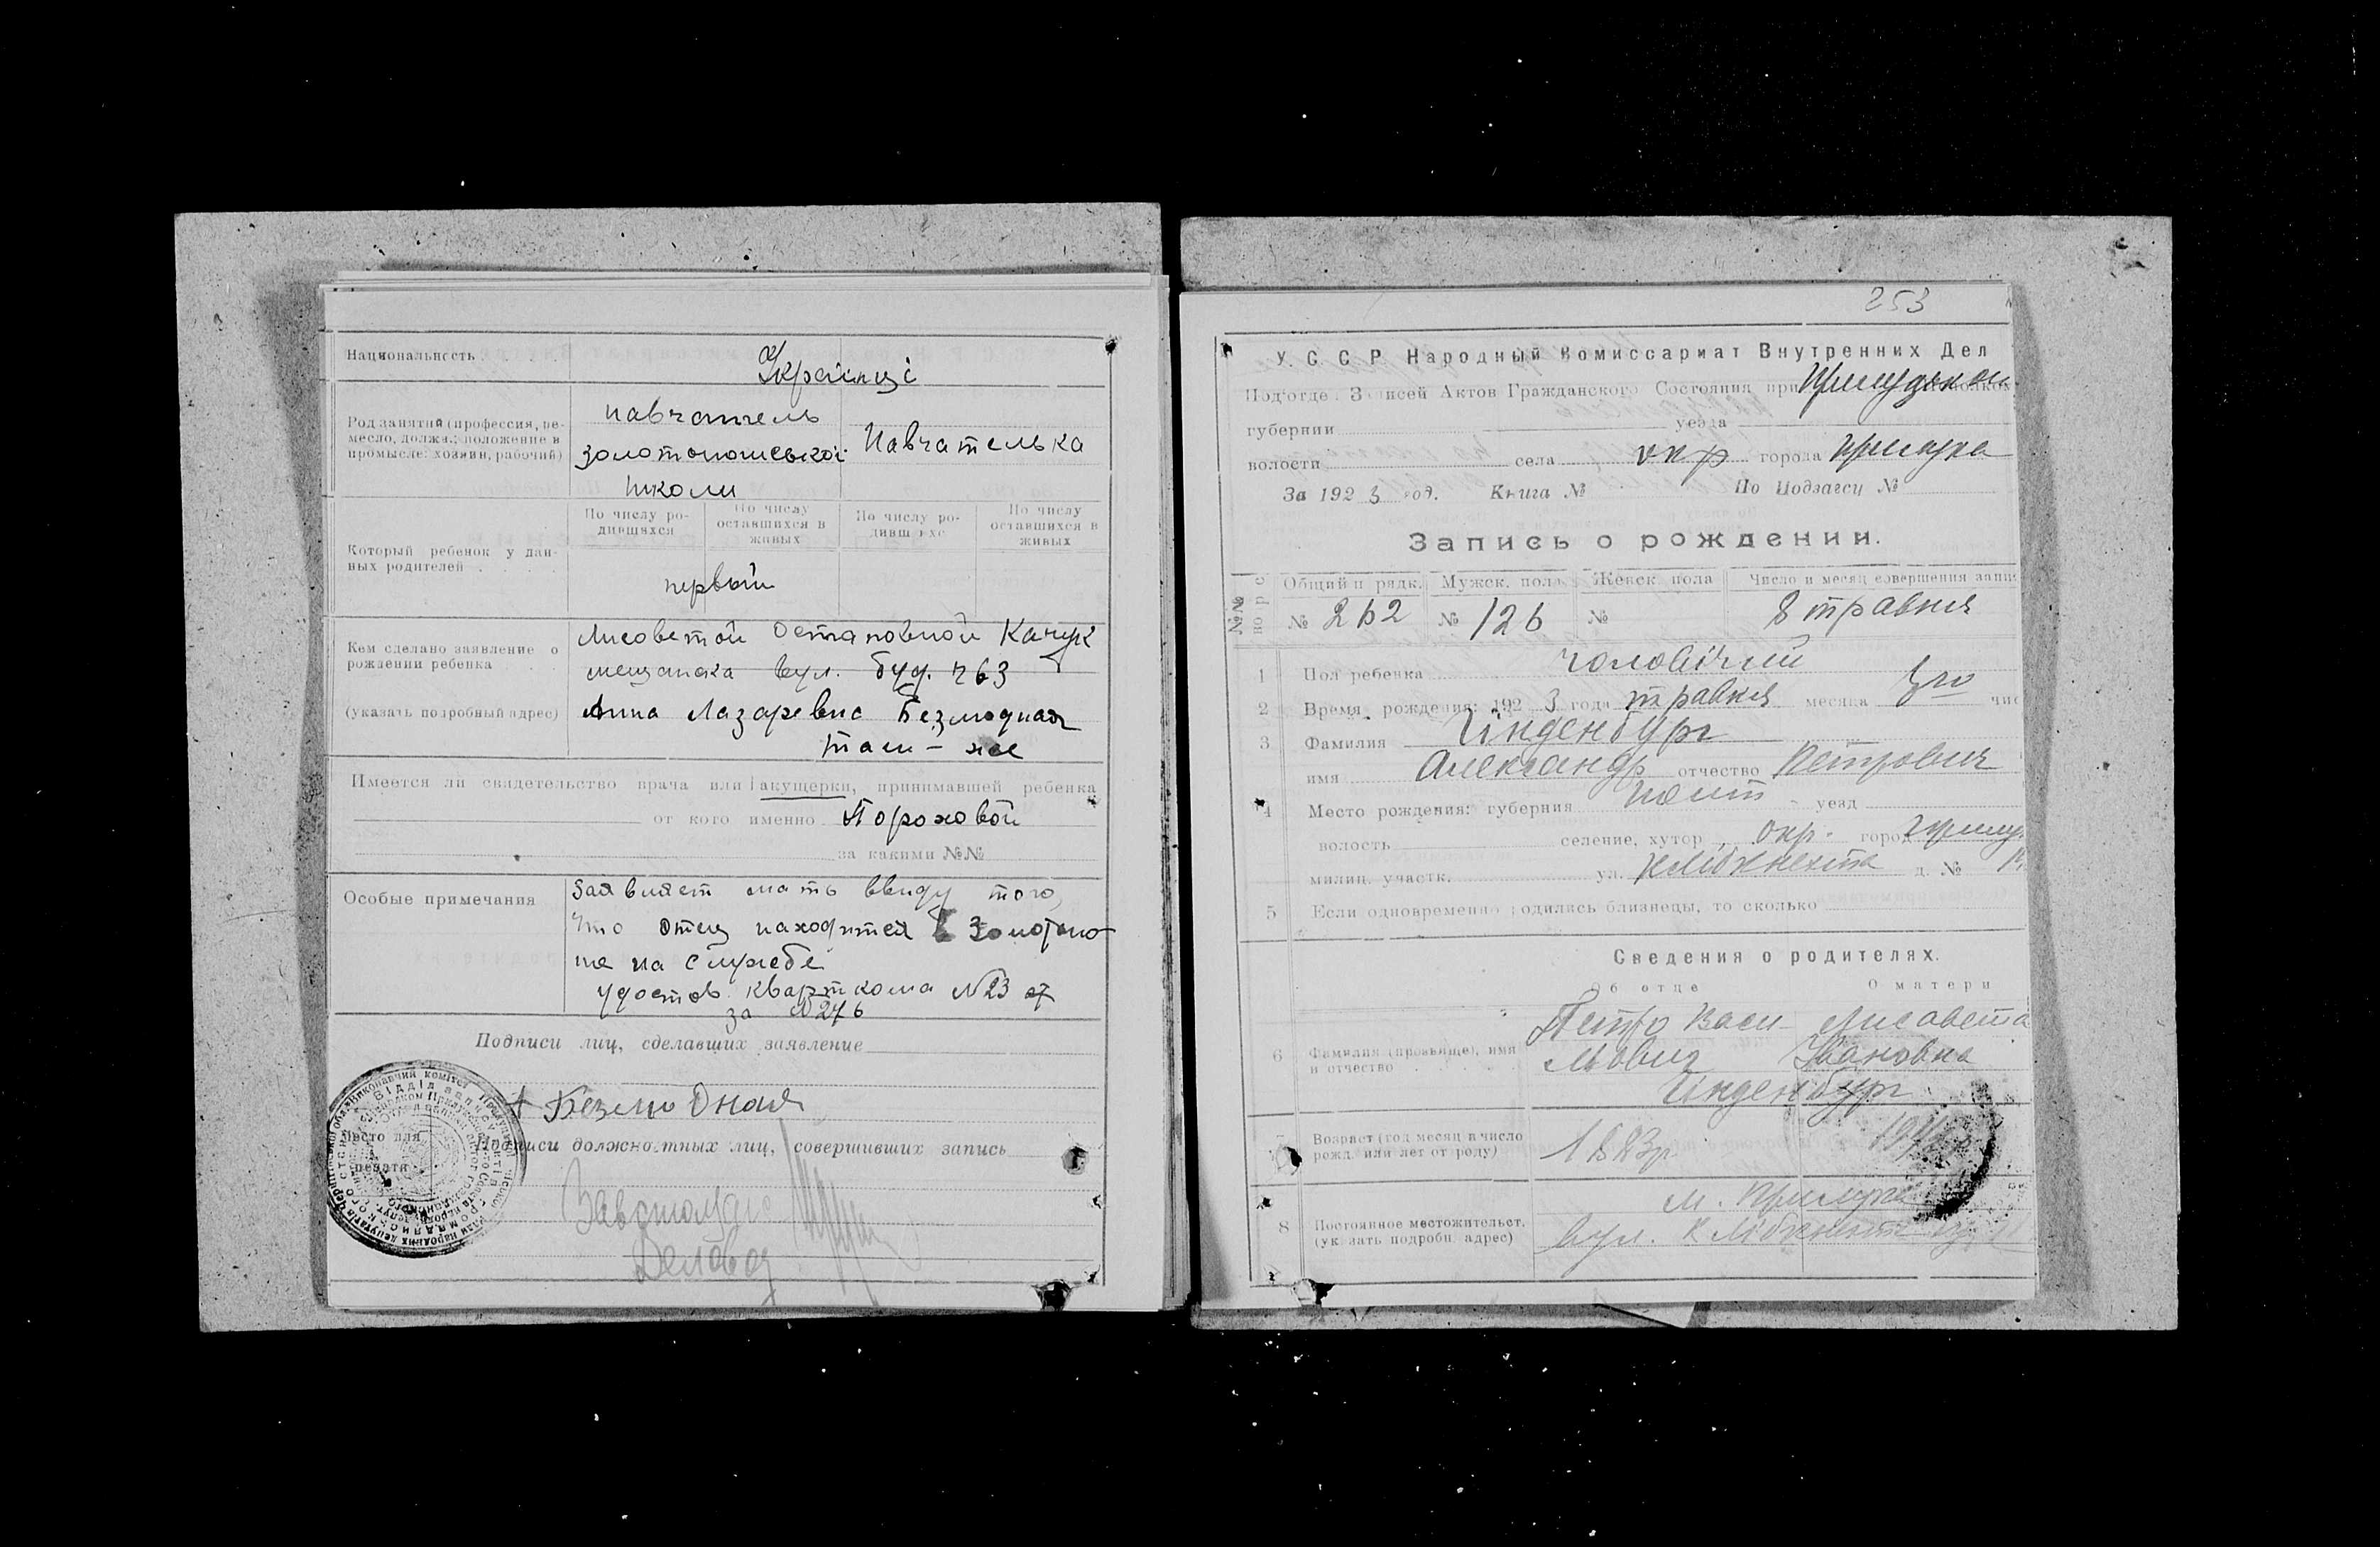 Национальность
Українці
Род занятий (профессия, ре-
месло, должн., положение в
промысле: хозяин, рабочий)
навчатель
золотоношської
школи
Навчателька
Который ребенок у дан-
ных родителей
По числу ро-
дившихся
По числу
оставшихся в
живых
По числу ро-
дивш хс
По числу
оставшихся в
живых
первый
Кем сделано заявление о
рождении ребенка
(указать подробный адрес)
Лисоветой Остаповной
вул. буд. ч 63
Анна Лазаревна Безмодная
там – же
Имеется ли свидетельство врача или акушерки, принимавшей ребенка
от кого именно Пороховой
за какими №№
Особые примечания
Заявляет мать ввиду того,
что отец находится в Золотоно-
ше на службе
удостов. кварткома №23 от
за №276
Подписи лиц, сделавших заявление
А Безмодная
Место для
печати
Подписи должностных лиц, совершивших запись
253
У. С. С. Р. Народный Комиссариат Внутренних Дел
Подотдел Записей Актов Гражданского Состояния при
губернии уезда
волости села окр города Прилука
За 1923 год. Книга № По Подзагсу №
Запись о рождении.
Общий п рядк. Мужск. пола Женск. пола Число и месяц совершения запис
№ 262 № 126 № 8 травня
1 Пол ребенка чоловічий
2 Время рождения: 1923 года травня месяца 3го чис
3 Фамилия Інденбург
имя Александр отчество Петрович
4 Место рождения: губерния Полт уезд
волость селение, хутор окр. город
милиц. участк. ул. К Лібкнехта д. №
5 Если одновременно родились близнецы, то сколько
Сведения о родителях.
Об отце О матери
6 Фамилия (прозвище), имя
и отчество
Петро Васи-
льович
Лисавета
Івановна
Інденбург
7 Возраст (год месяц и число
рожд. или лет от роду)
1883р.
8 Постоянное местожительст.
(указать подробн. адрес)
м. Прилука
вул. К Лібкнехта